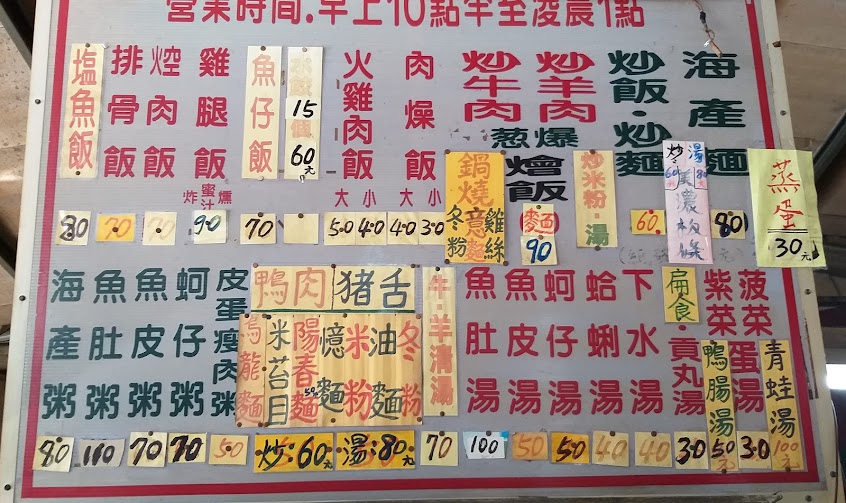 營業時間.早上10點半至凌晨1點
塩魚飯 80
排骨飯 70
焢肉飯 70
雞腿飯 炸 蜜汁 燻 90
魚仔飯 70
15個 60元
火雞肉飯 大 小 50 40
肉燥飯 大 小 40 30
鍋燒 意麵 雞絲 冬粉
炒牛肉 炒羊肉 葱爆 燴飯 麵 90
炒米粉·湯
炒飯·炒麵 60
炒:60 湯:80 美濃粄條
海產麵 80
蒸蛋 30元
海產粥 80
魚肚粥 110
魚皮粥 70
蚵仔粥 70
皮蛋瘦肉粥 50
鴨肉 豬舌
烏龍麵 米苔目 陽春麵 50 憶麵 米粉 油麵 冬粉
炒:60元 湯:80元
牛羊清湯 70
魚肚湯 100
魚皮湯 50
蚵仔湯 50
蛤蜊湯 40
下水湯 40
扁食·貢丸湯 30
紫菜
鴨腸湯 50元
菠菜
蛋湯 30
青蛙湯 100元